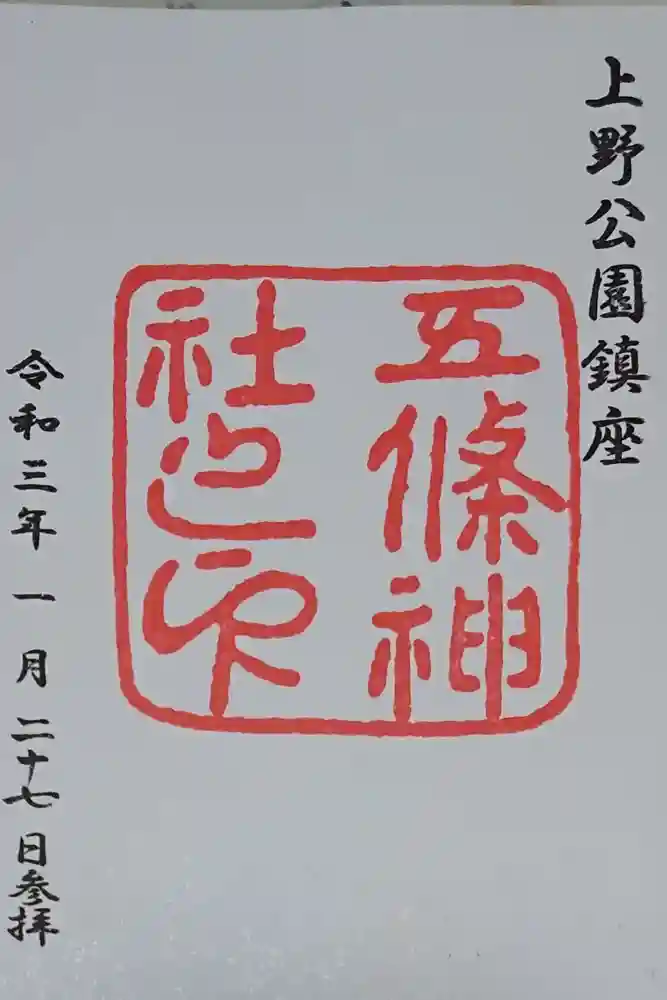 上野公園鎮座
五條神
社之印
令和三年一月二十七日参拝